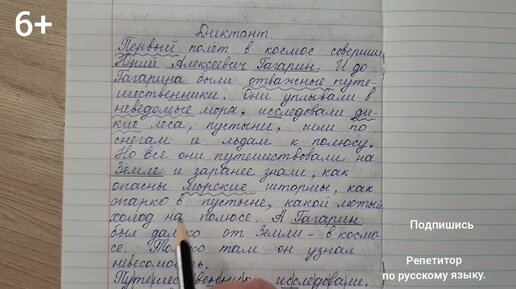 6+
Диктант
Первый полёт в космос совершил
Юрий Алексеевич Гагарин. И до
Гагарина были отважные путе-
шественники. Они уплывали в
неведомые моря, исследовали ди-
кие леса, пустыни, шли по
снегам и льдам к полюсу.
Но все они путешествовали на
Земле и заранее знали, как
опасны морские штормы, как
жарко в пустыне, какой лютый
холод на полюсе. А Гагарин
был далеко от Земли - в космо-
се. Только там он узнал
невесомость.
Путешественники исследовали.
Подпишись
Репетитор
по русскому языку.